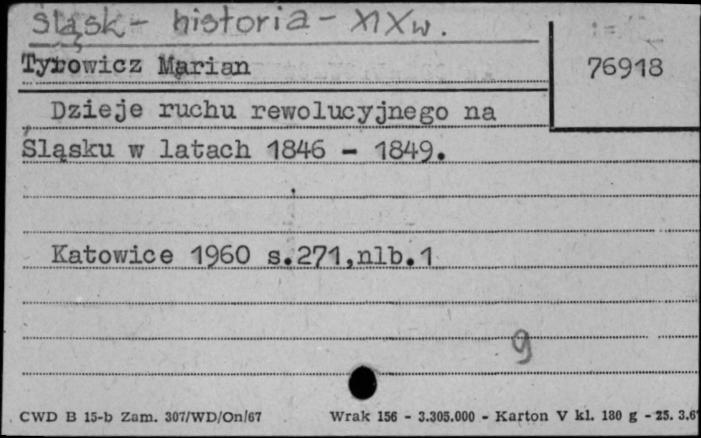 śląsk - historia - XIX w.
Tyrowicz Marian
76918
Dzieje ruchu rewolucyjnego na
Śląsku w latach 1846 - 1849.
Katowice 1960 s.271,nlb.1
9
CWD B 15-b Zam. 307/WD/On/67 Wrak 156 - 3.305.000 - Karton V kl. 180 g - 25. 3.6